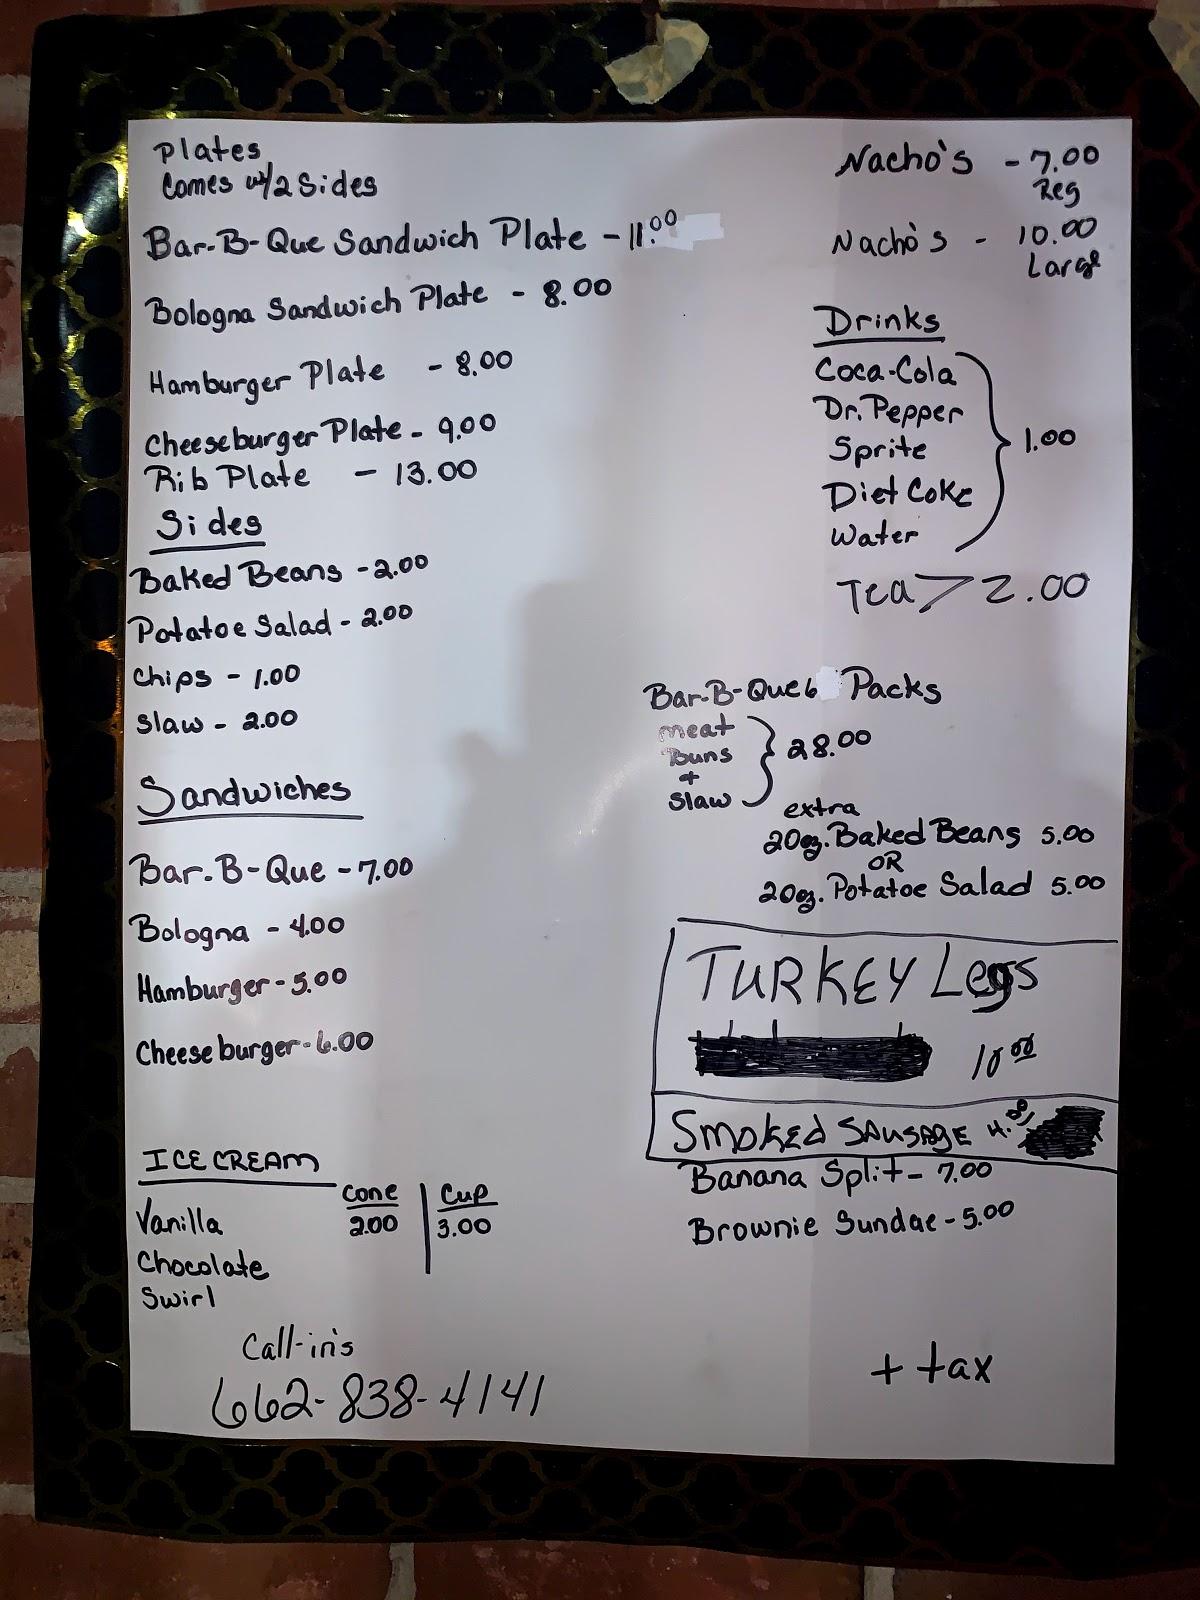 Plates
Comes w/2 Sides
Bar-B-Que Sandwich Plate - 11.00
Bologna Sandwich Plate - 8.00
Hamburger Plate - 8.00
Cheeseburger Plate - 9.00
Rib Plate - 13.00
Sides
Baked Beans - 2.00
Potatoe Salad - 2.00
Chips - 1.00
Slaw - 2.00
Sandwiches
Bar-B-Que - 7.00
Bologna - 4.00
Hamburger - 5.00
Cheeseburger - 6.00
ICE CREAM
Cone Cup
Vanilla 2.00 3.00
Chocolate
Swirl
Call-in's
662-838-4141
Nacho's - 7.00
Reg
Nacho's - 10.00
Large
Drinks
Coca-Cola
Dr. Pepper
Sprite
Diet Coke
Water
1.00
Tea > 2.00
Bar-B-Que 6 Packs
meat
Buns
+
Slaw
28.00
extra
20oz. Baked Beans 5.00
OR
20oz. Potatoe Salad 5.00
TURKEY Legs
10.00
Smoked SAUSAGE
Banana Split - 7.00
Brownie Sundae - 5.00
+ tax